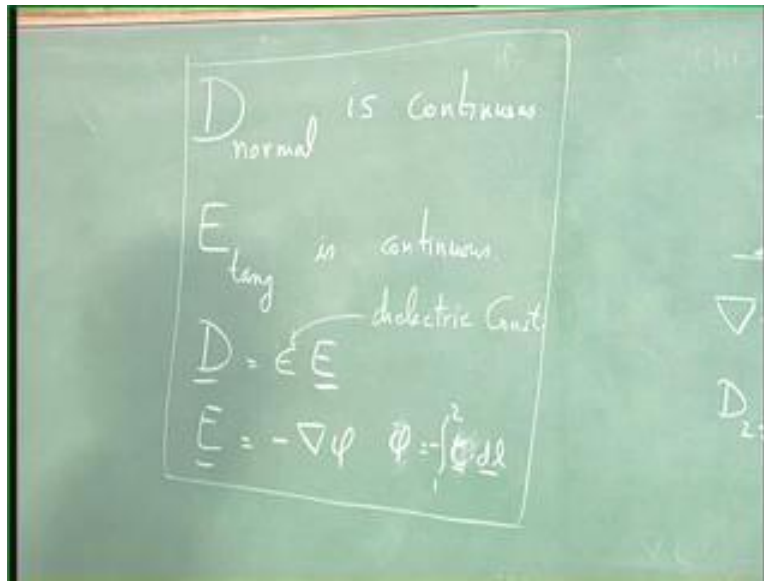 D_normal is continuous
E_tang is continuous.
dielectric Const.
D = ε E
E = - ∇φ φ = -∫₁² E · dl
∇
D₂ =